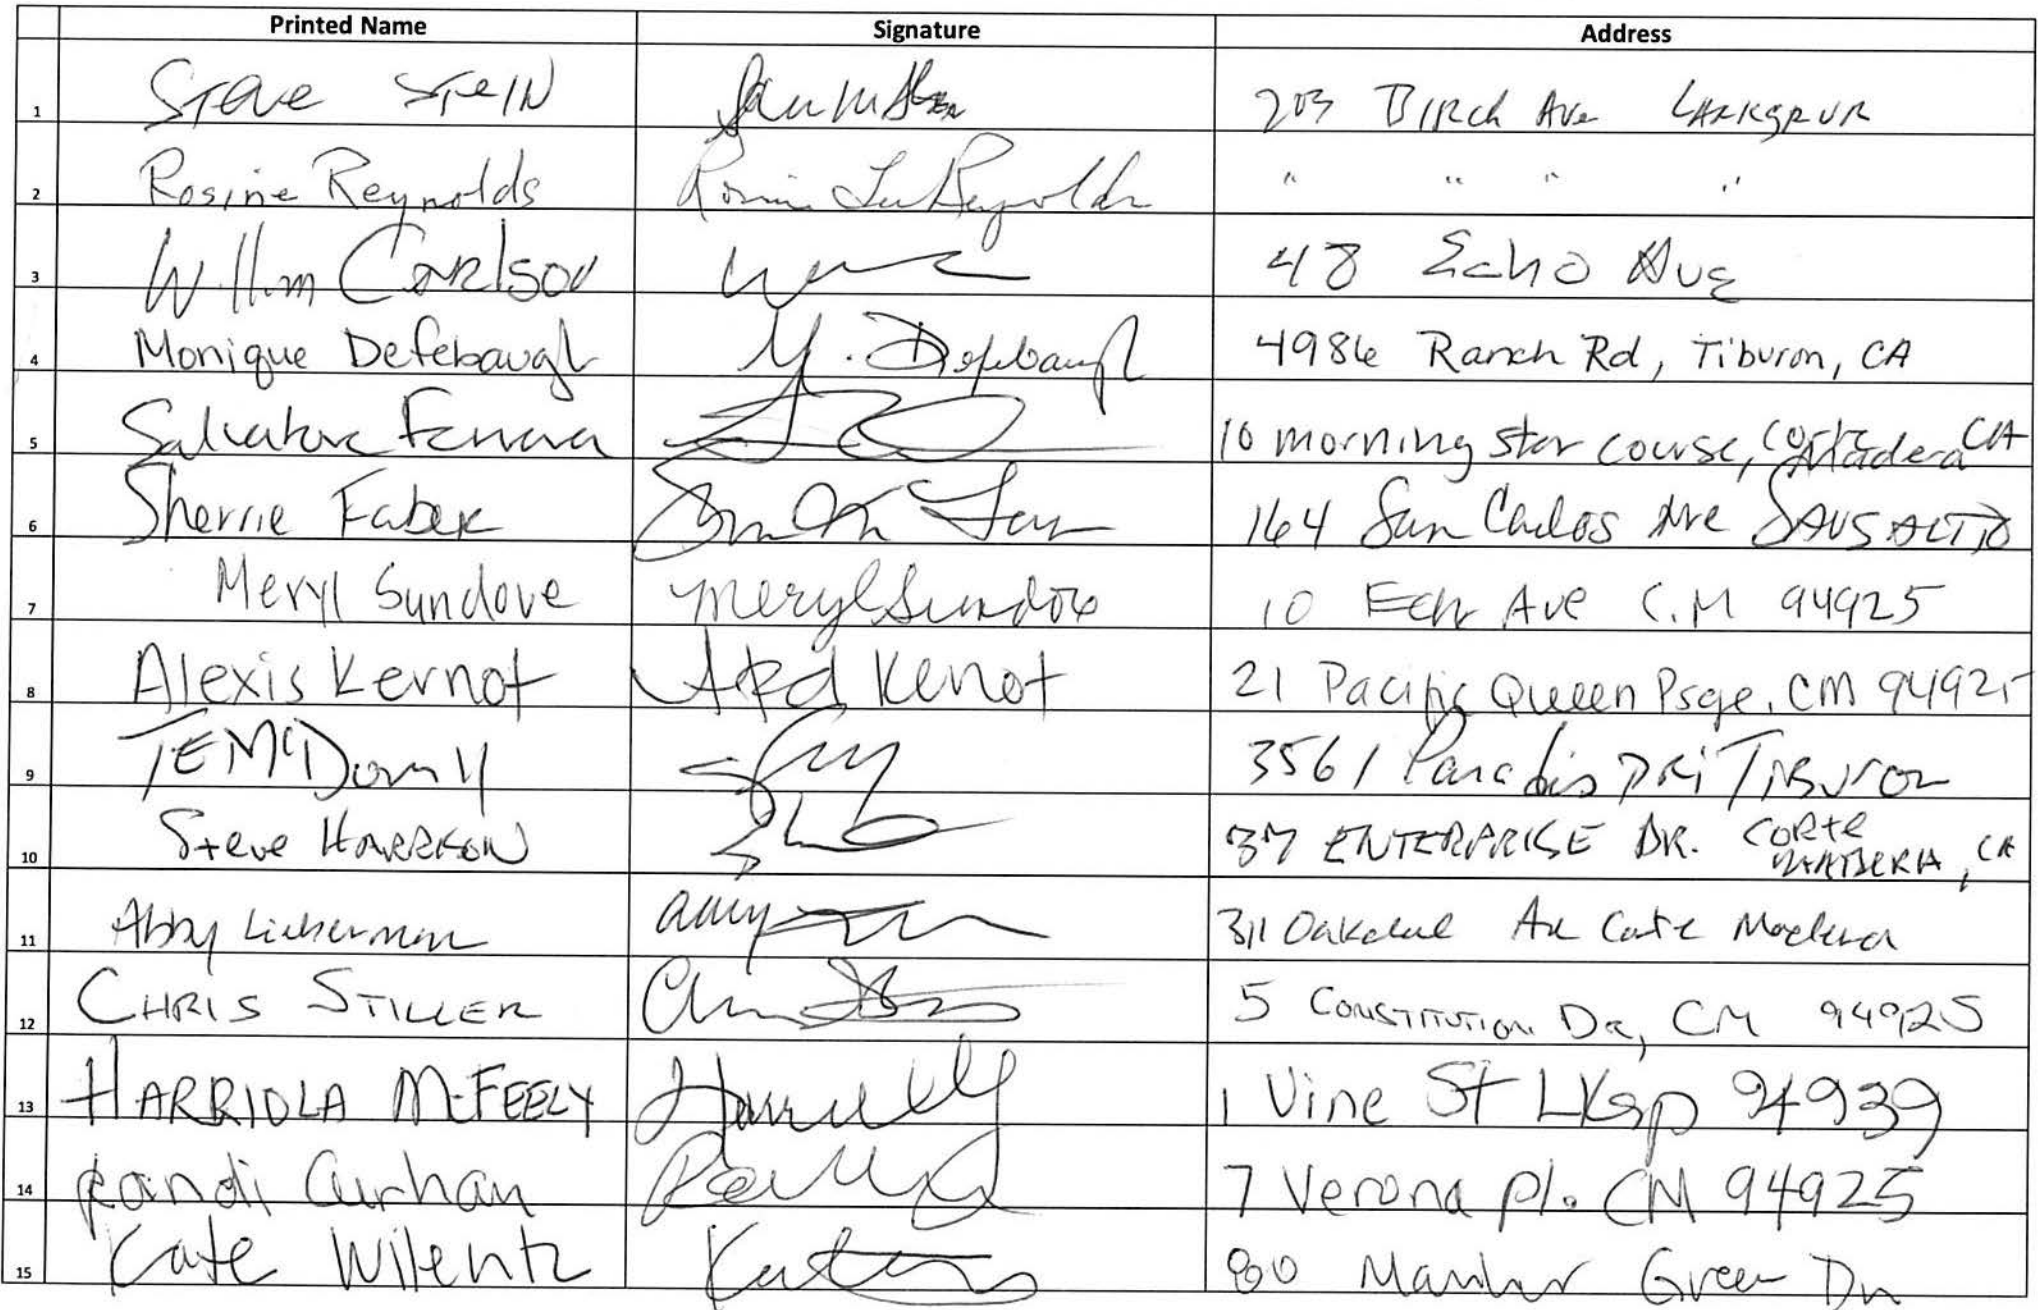 Printed Name Signature Address
1 Steve Stein 203 Birch Ave Larkspur
2 Rosine Reynolds Rosine Lee Reynolds " " " "
3 Carlson 48 Echo Ave
4 Monique Defebaugh M. Defebaugh 4986 Ranch Rd, Tiburon, CA
5 Salvatore 10 morning star course, Corte Madera CA
6 Sherrie Faber 164 San Carlos Ave SAUSALITO
7 Meryl Sundove Meryl Sundove 10 Echo Ave C.M 94925
8 Alexis Kernot Kernot 21 Pacific Queen Psge, CM 94925
9 3561 Tiburon
10 Steve 37 ENTERPRISE DR. CORTE MADERA, CA
11 Abby Lieberman 311 Oakdale Ave Corte Madera
12 CHRIS STILLER 5 CONSTITUTION DR, CM 94925
13 HARRIOLA McFEELY 1 Vine St LKSP 94939
14 Randi Curhan 7 Verona Pl. CM 94925
15 Kate Wilentz Green Dr